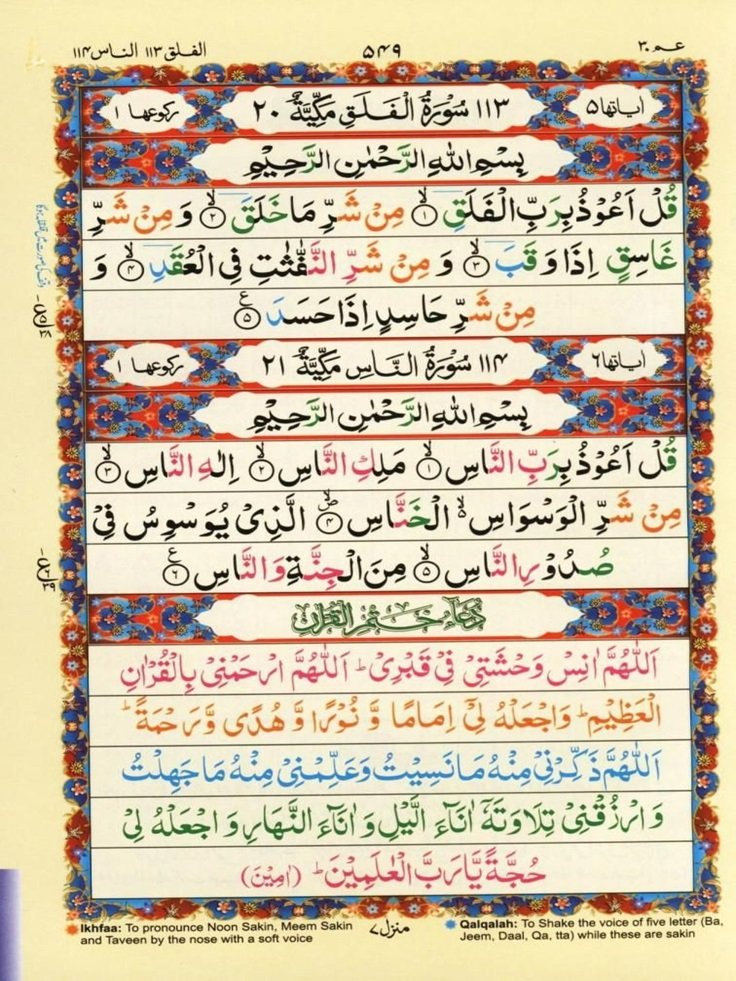 الفلق ١١٣ الناس ١١٤
٥٤٩
عـم ٣٠
اٰیاتها ٥
١١٣ سُوْرَةُ الْفَلَقِ مَكِّيَّةٌ ٢٠
رکوعها ١
بِسْمِ اللهِ الرَّحْمٰنِ الرَّحِيْمِ
قُلْ اَعُوْذُ بِرَبِّ الْفَلَقِ ۙ﴿١﴾ مِنْ شَرِّ مَا خَلَقَ ۙ﴿٢﴾ وَ مِنْ شَرِّ
غَاسِقٍ اِذَا وَقَبَ ۙ﴿٣﴾ وَ مِنْ شَرِّ النَّفّٰثٰتِ فِی الْعُقَدِ ۙ﴿٤﴾ وَ
مِنْ شَرِّ حَاسِدٍ اِذَا حَسَدَ ﴿٥﴾ ع
اٰیاتها ٦
١١٤ سُوْرَةُ النَّاسِ مَكِّيَّةٌ ٢١
رکوعها ١
بِسْمِ اللهِ الرَّحْمٰنِ الرَّحِيْمِ
قُلْ اَعُوْذُ بِرَبِّ النَّاسِ ۙ﴿١﴾ مَلِكِ النَّاسِ ۙ﴿٢﴾ اِلٰهِ النَّاسِ ۙ﴿٣﴾
مِنْ شَرِّ الْوَسْوَاسِ ۙ۬ الْخَنَّاسِ ۪ۙ﴿٤﴾ الَّذِیْ یُوَسْوِسُ فِیْ
صُدُوْرِ النَّاسِ ۙ﴿٥﴾ مِنَ الْجِنَّةِ وَ النَّاسِ ﴿٦﴾ ع
دُعَاءُ خَتْمِ الْقُرْاٰنِ
اَللّٰهُمَّ اٰنِسْ وَحْشَتِیْ فِیْ قَبْرِیْ ؕ اَللّٰهُمَّ ارْحَمْنِیْ بِالْقُرْاٰنِ
الْعَظِیْمِ ؕ وَاجْعَلْهُ لِیْٓ اِمَامًا وَّ نُوْرًا وَّ هُدًی وَّ رَحْمَةً ؕ
اَللّٰهُمَّ ذَكِّرْنِیْ مِنْهُ مَا نَسِیْتُ وَعَلِّمْنِیْ مِنْهُ مَا جَهِلْتُ
وَارْزُقْنِیْ تِلَاوَتَهٗٓ اٰنَآءَ الَّیْلِ وَ اٰنَآءَ النَّهَارِ وَاجْعَلْهُ لِیْ
حُجَّةً یَّارَبَّ الْعٰلَمِیْنَ ؕ (اٰمِیْنَ)
Ikhfaa: To pronounce Noon Sakin, Meem Sakin
and Taveen by the nose with a soft voice
منزل ٧
Qalqalah: To Shake the voice of five letter (Ba,
Jeem, Daal, Qa, tta) while these are sakin